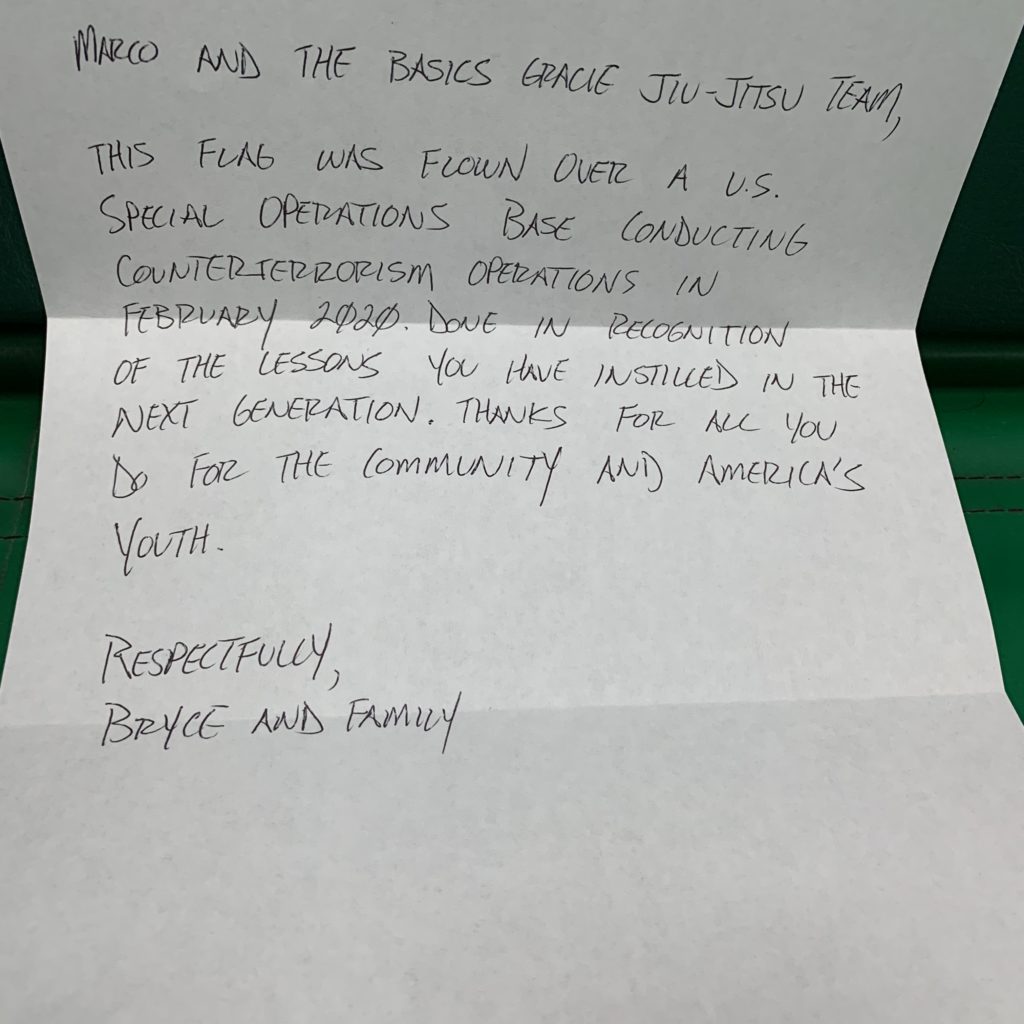 MARCO AND THE BASICS GRACIE JIU-JITSU TEAM,
THIS FLAG WAS FLOWN OVER A U.S.
SPECIAL OPERATIONS BASE CONDUCTING
COUNTERTERRORISM OPERATIONS IN
FEBRUARY 2020. DONE IN RECOGNITION
OF THE LESSONS YOU HAVE INSTILLED IN THE
NEXT GENERATION. THANKS FOR ALL YOU
DO FOR THE COMMUNITY AND AMERICA'S
YOUTH.
RESPECTFULLY,
BRYCE AND FAMILY